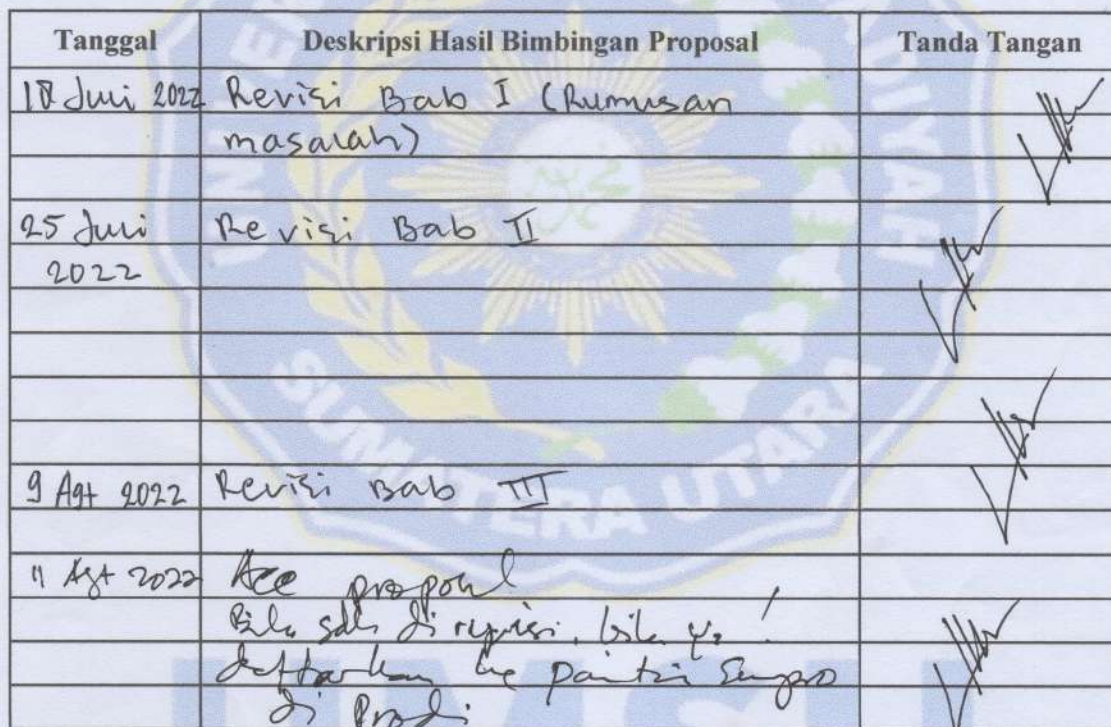 Tanggal Deskripsi Hasil Bimbingan Proposal Tanda Tangan
18 Juni 2022 Revisi Bab I (Rumusan
masalah)
25 Juni Revisi Bab II
2022
9 Agt 2022 Revisi Bab III
11 Agt 2022 Acc proposal
Bila sdh di revisi, bila ya!
daftarkan ke panitia Sempro
di Prodi
SUMATERA UTARA
UMSU